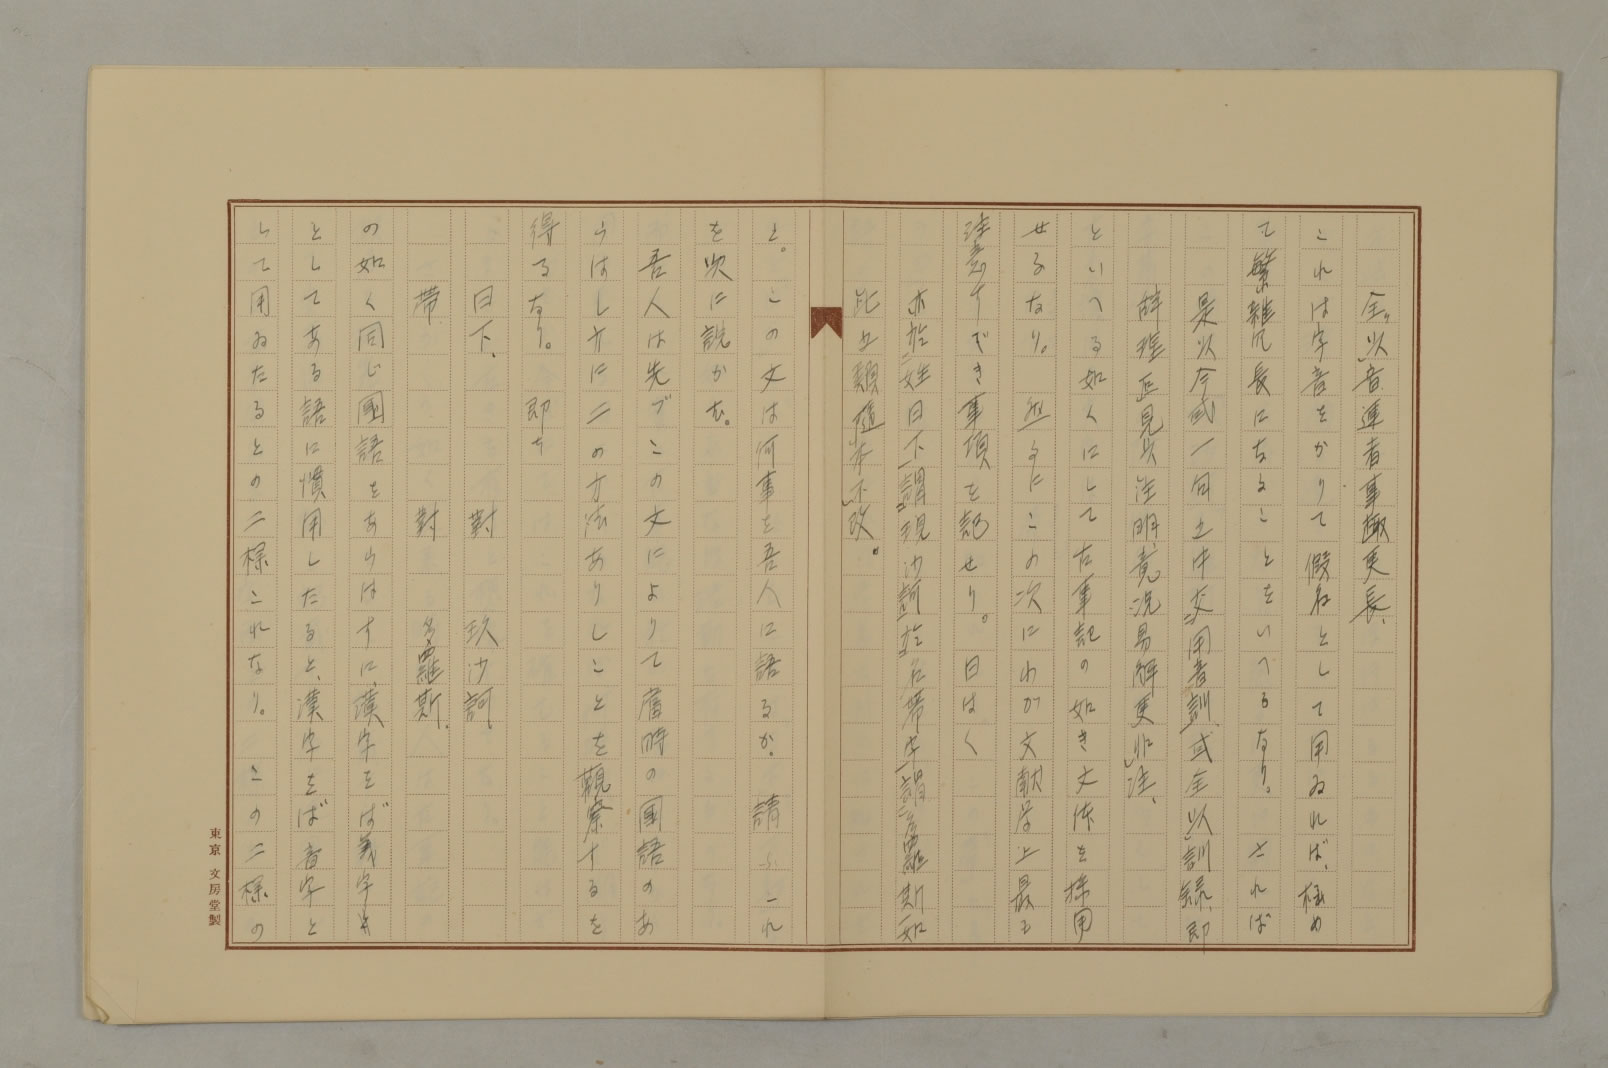 全以音連者事趣更長、
これは字音をかりて假名として用ゐれば、極め
て繁雜冗長になることをいへるなり。されば
是以今或一句之中交用音訓、或全以訓録、即
辭理叵見以注明、意況易解更非注、
といへる如くにして古事記の如き文体を採用
せるなり。然るにこの次にわが文献学上最も
注意すべき事項を記せり。曰はく
亦於姓日下謂玖沙訶、於名帶字謂多羅斯、如
此之類隨本不改。
と。この文は何事を吾人に語るか。請ふこれ
を次に説かむ。
吾人は先づこの文によりて當時の國語のあ
らはし方に二の方法ありしことを觀察するを
得るなり。即ち
日下、對玖沙訶、
帶對多羅斯、
の如く同じ國語をあらはすに、漢字をば義字
としてある語に慣用したると、漢字をば音字と
して用ゐたるとの二樣これなり。この二樣の
東京 文房堂製